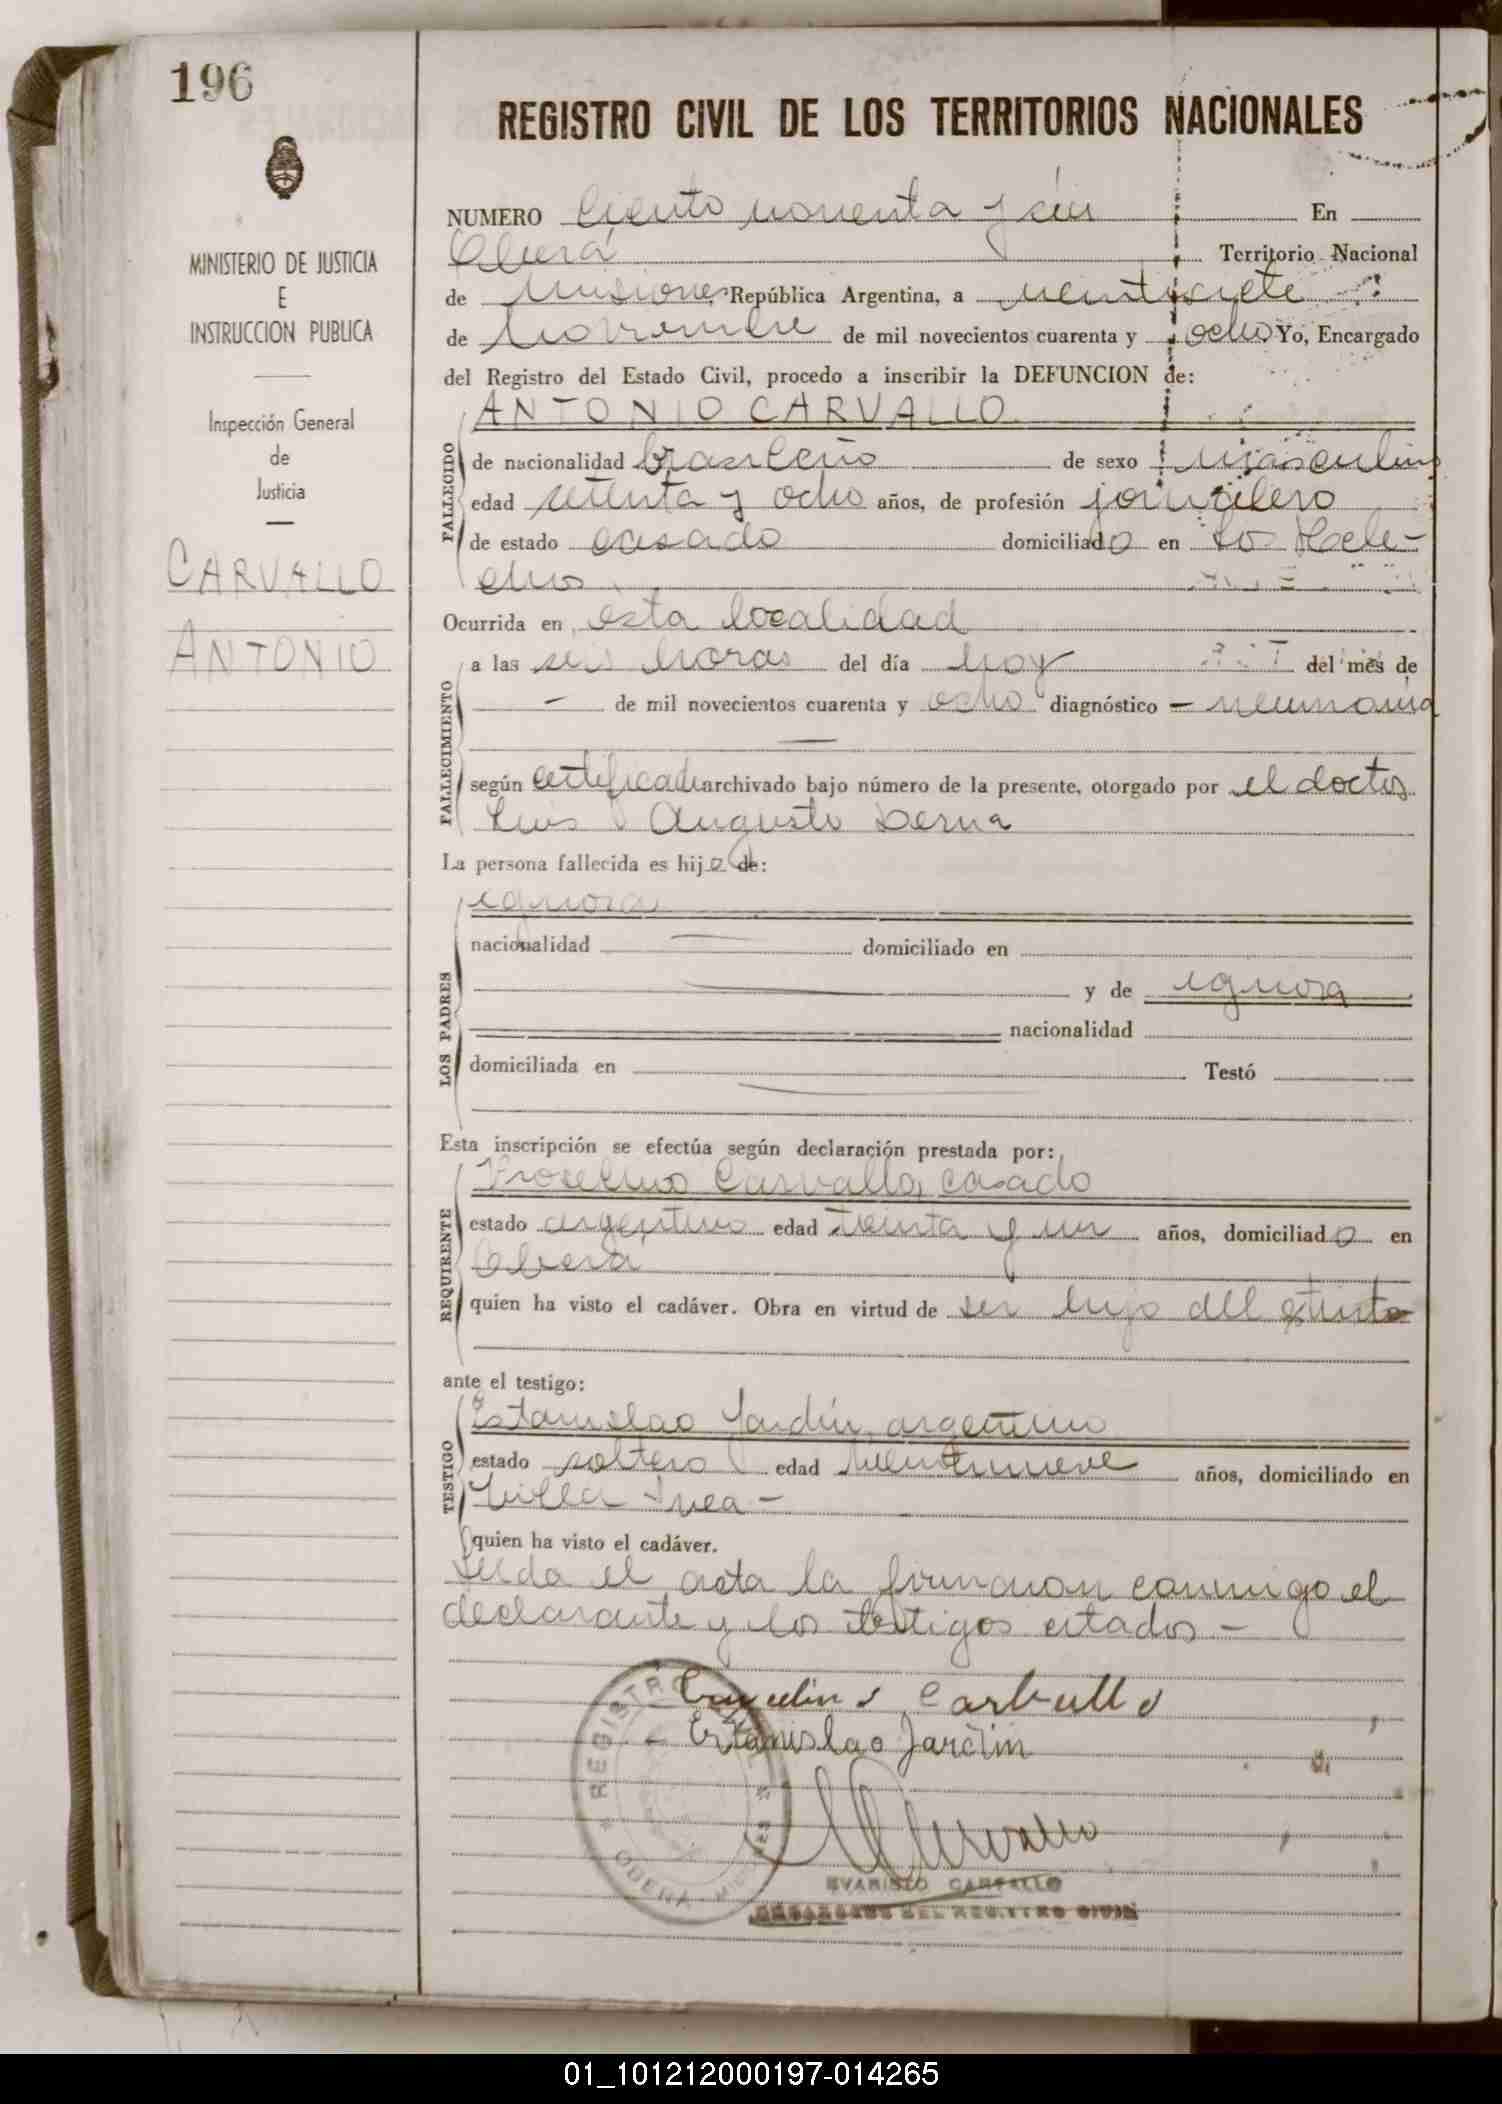 196
MINISTERIO DE JUSTICIA
E
INSTRUCCION PUBLICA
Inspección General
de
Justicia
CARVALLO
ANTONIO
REGISTRO CIVIL DE LOS TERRITORIOS NACIONALES
NUMERO Ciento noventa y seis En
Oberá Territorio Nacional
de Misiones, República Argentina, a veintisiete
de Noviembre de mil novecientos cuarenta y ocho Yo, Encargado
del Registro del Estado Civil, procedo a inscribir la DEFUNCION de:
FALLECIDO
ANTONIO CARVALLO
de nacionalidad brasileño de sexo masculino
edad setenta y ocho años, de profesión jornalero
de estado casado domiciliado en Los Hele-
chos
Ocurrida en esta localidad
FALLECIMIENTO
a las seis horas del día hoy del mes de
— de mil novecientos cuarenta y ocho diagnóstico — neumonía
según certificado archivado bajo número de la presente, otorgado por el doctor
Luis Augusto Derna
La persona fallecida es hijo de:
LOS PADRES
ignora
nacionalidad domiciliado en
y de ignora
nacionalidad
domiciliada en Testó
Esta inscripción se efectúa según declaración prestada por:
REQUIRENTE
Carvallo, casado
estado argentino edad treinta y un años, domiciliado en
Oberá
quien ha visto el cadáver. Obra en virtud de ser hijo del extinto
ante el testigo:
TESTIGO
Estanislao Jardin, argentino
estado soltero edad veintinueve años, domiciliado en
Villa Svea —
quien ha visto el cadáver.
Leida el acta la firmaron conmigo el
declarante y los testigos citados —
Carballo
Estanislao Jardin
REGISTRO
OBERA - MISIONES
EVARISTO CARVALLO
ENCARGADO DEL REGISTRO CIVIL
01_101212000197-014265